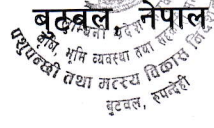 बुटवल, नेपाल
कृषि, भूमि व्यवस्था तथा सहकारी
पशुपन्छी तथा मत्स्य विकास
बुटवल, रुपन्देही